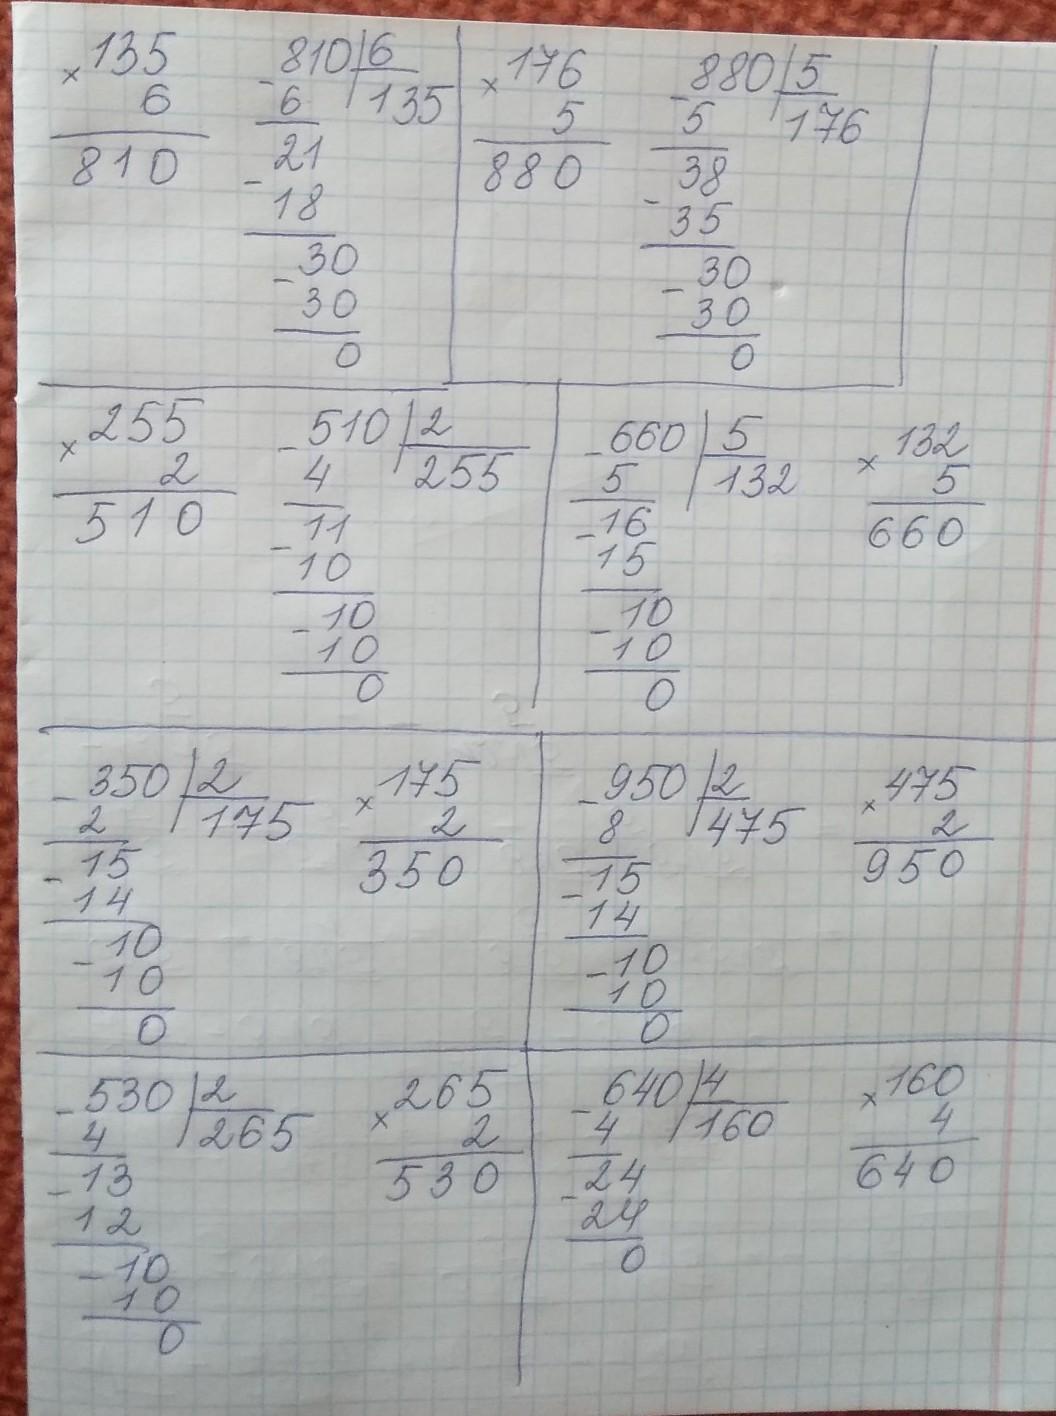 × 135
6
810
- 810 | 6
6 135
21
- 18
- 30
30
0
× 176
5
880
- 880 | 5
5 176
38
- 35
- 30
30
0
× 255
2
510
- 510 | 2
4 255
- 11
10
- 10
10
0
- 660 | 5
5 132
- 16
15
- 10
10
0
× 132
5
660
- 350 | 2
2 175
- 15
14
- 10
10
0
× 175
2
350
- 950 | 2
8 475
- 15
14
- 10
10
0
× 475
2
950
- 530 | 2
4 265
- 13
12
- 10
10
0
× 265
2
530
- 640 | 4
4 160
- 24
24
0
× 160
4
640